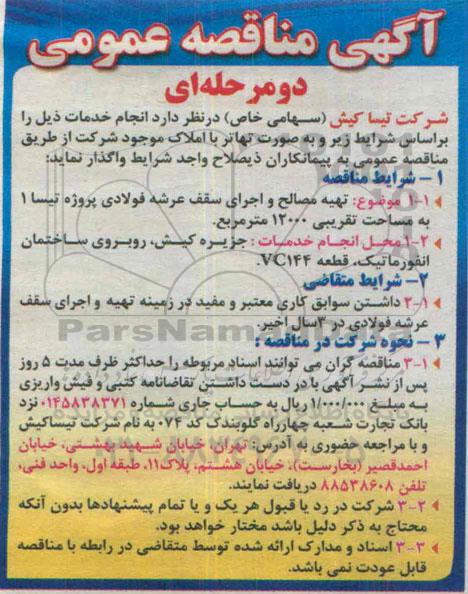 آگهی مناقصه عمومی
دو مرحله‌ای
شرکت تیسا کیش (سهامی خاص) درنظر دارد انجام خدمات ذیل را
براساس شرایط زیر و به صورت تهاتر با املاک موجود شرکت از طریق
مناقصه عمومی به پیمانکاران ذیصلاح واجد شرایط واگذار نماید:
۱- شرایط مناقصه
۱-۱ موضوع: تهیه مصالح و اجرای سقف عرشه فولادی پروژه تیسا ۱
به مساحت تقریبی ۱۲۰۰۰ مترمربع.
۱-۲ محل انجام خدمات: جزیره کیش، روبروی ساختمان
انفورماتیک، قطعه VC۱۴۴.
۲- شرایط متقاضی
۲-۱ داشتن سوابق کاری معتبر و مفید در زمینه تهیه و اجرای سقف
عرشه فولادی در ۳سال اخیر.
۳- نحوه شرکت در مناقصه:
۳-۱ مناقصه گران می توانند اسناد مربوطه را حداکثر ظرف مدت ۵ روز
پس از نشر آگهی با در دست داشتن تقاضانامه کتبی و فیش واریزی
به مبلغ ۱/۰۰۰/۰۰۰ ریال به حساب جاری شماره ۰۱۴۵۸۳۸۳۷۱ نزد
بانک تجارت شعبه چهارراه گلوبندک کد ۰۷۴ به نام شرکت تیساکیش
و با مراجعه حضوری به آدرس: تهران، خیابان شهید بهشتی، خیابان
احمدقصیر (بخارست)، خیابان هشتم، پلاک۱۱، طبقه اول، واحد فنی،
تلفن ۸۸۵۳۸۶۰۸ دریافت نمایند.
۳-۲ شرکت در رد یا قبول هر یک و یا تمام پیشنهادها بدون آنکه
محتاج به ذکر دلیل باشد مختار خواهد بود.
۳-۳ اسناد و مدارک ارائه شده توسط متقاضی در رابطه با مناقصه
قابل عودت نمی باشد.